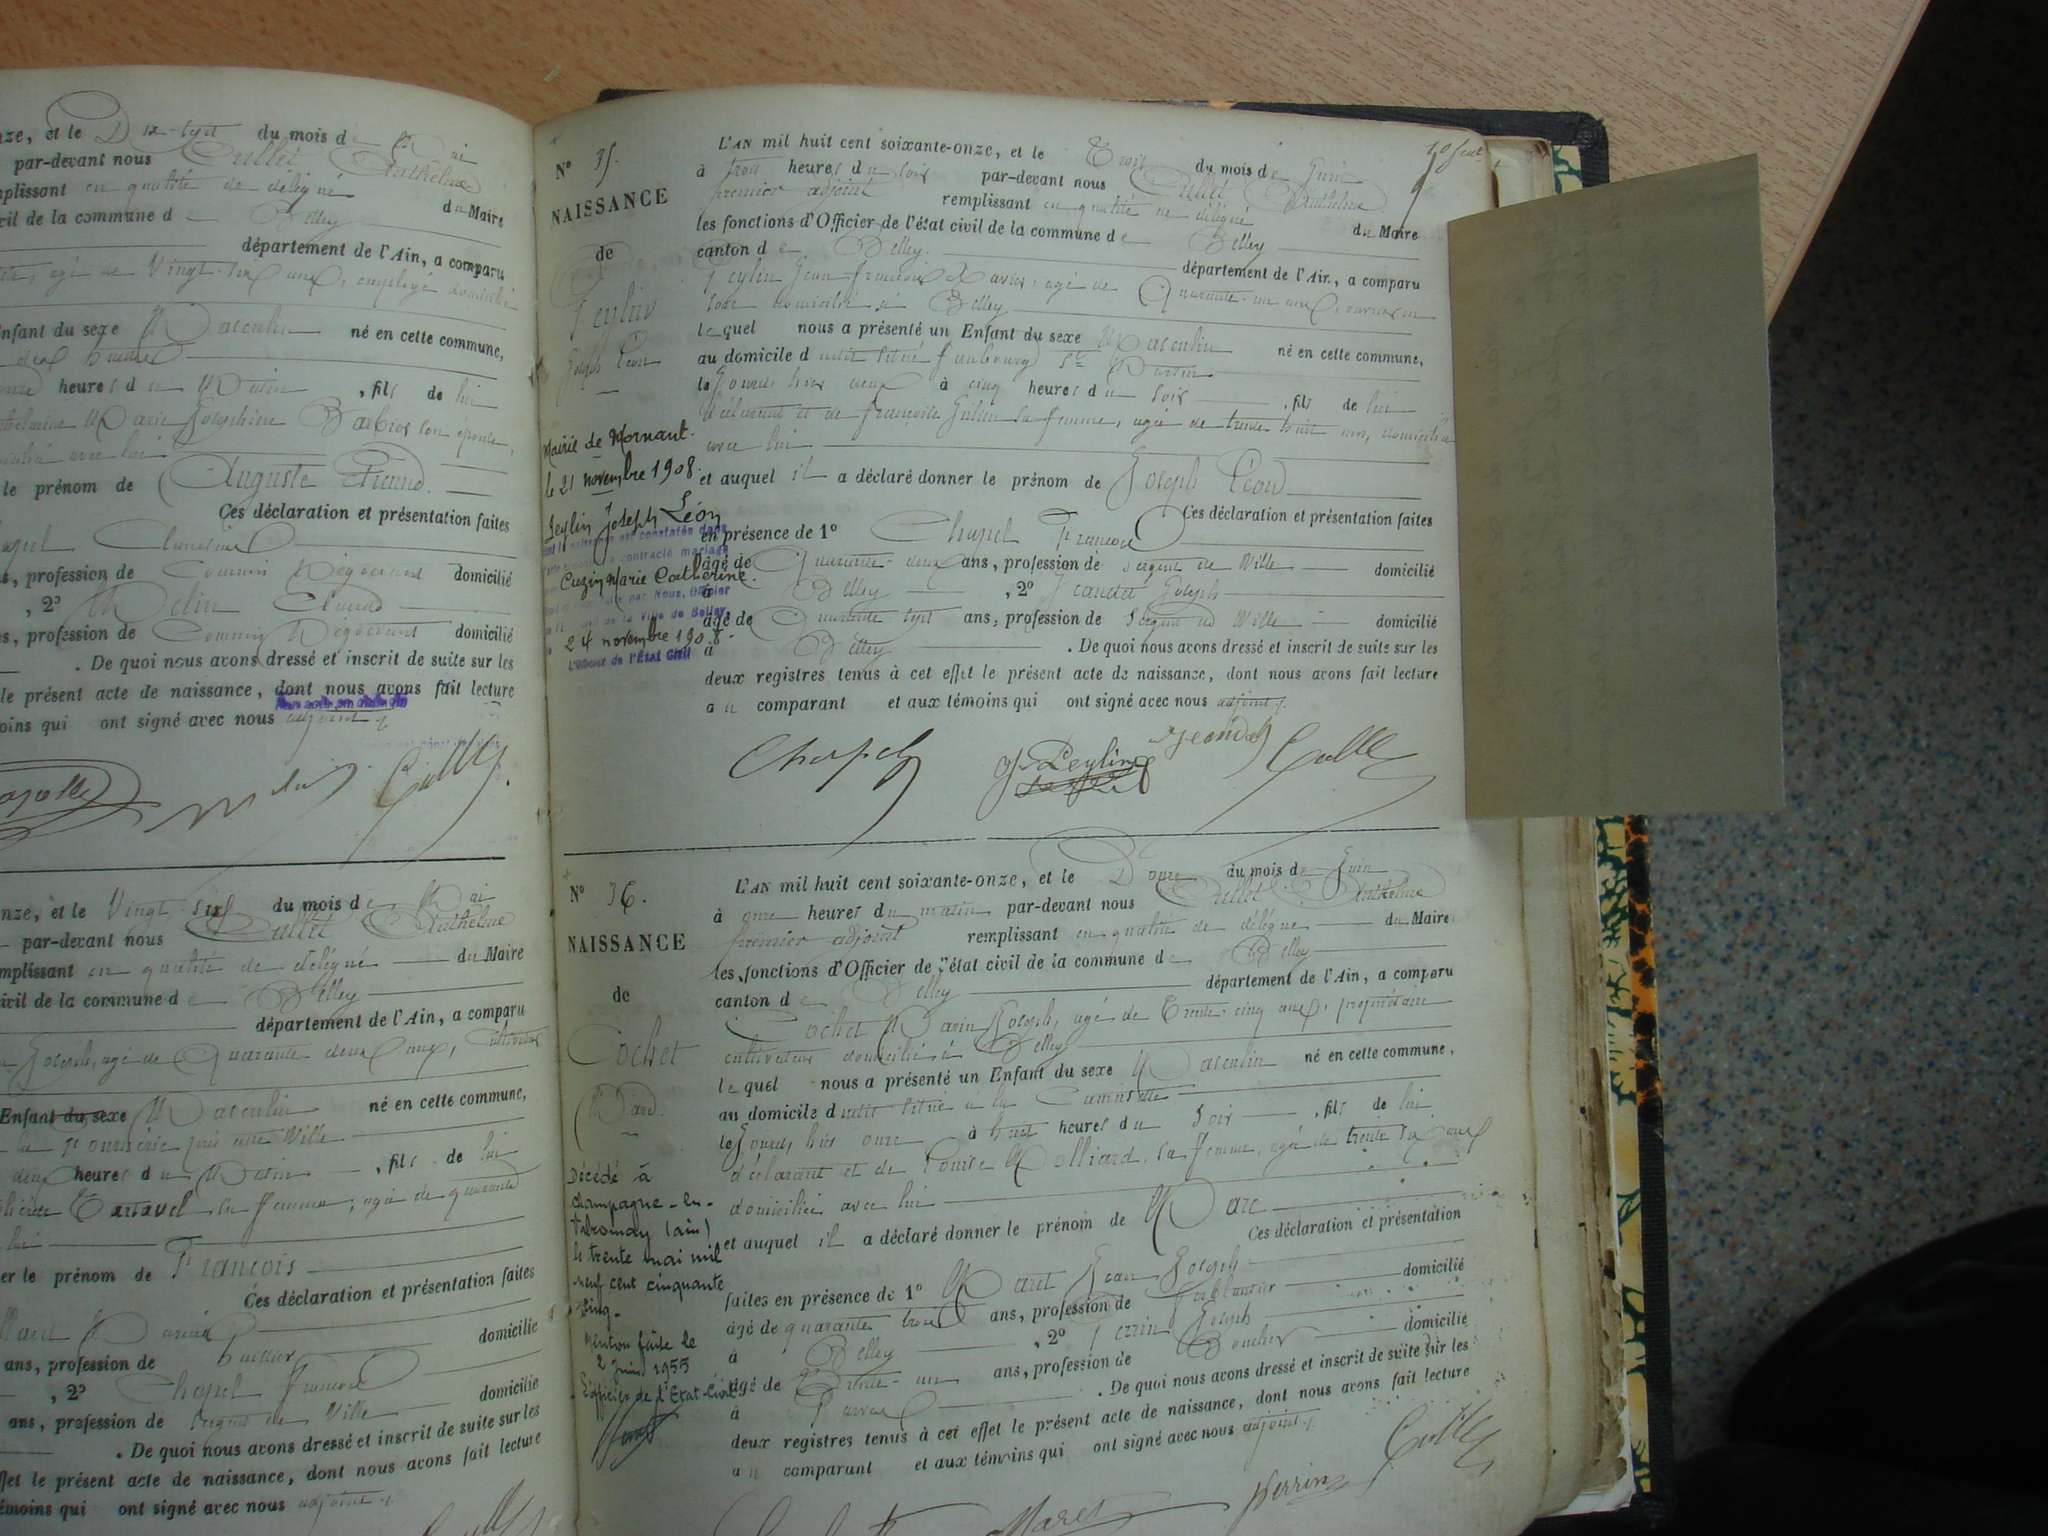 nze, et le Dix-sept du mois de Mai
par-devant nous Cullet Anthelme
mplissant en qualité de délégué du Maire
civil de la commune de Belley
département de l'Ain, a comparu
agé de Vingt-six ans, employé domicilié
Enfant du sexe Masculin né en cette commune,
heures du Matin, fils de lui
Marie Joséphine son épouse,
avec lui
le prénom de Auguste
Ces déclaration et présentation faites
s, profession de Commis Négociant domicilié
, 2° Melin Claude
s, profession de Commis Négociant domicilié
. De quoi nous avons dressé et inscrit de suite sur les
le présent acte de naissance, dont nous avons fait lecture
moins qui ont signé avec nous adjoint
nze, et le Vingt-six du mois de Mai
par-devant nous Cullet Anthelme
mplissant en qualité de délégué du Maire
civil de la commune de Belley
département de l'Ain, a comparu
Joseph, agé de Quarante deux ans, cultivateur
Enfant du sexe Masculin né en cette commune,
près cette Ville
deux heures du Matin, fils de lui
sa femme, agée de quarante
lui
er le prénom de François
Ces déclaration et présentation faites
domicilié
ans, profession de huissier
, 2° Chapel François domicilié
ans, profession de Sergent de Ville
. De quoi nous avons dressé et inscrit de suite sur les
effet le présent acte de naissance, dont nous avons fait lecture
témoins qui ont signé avec nous adjoint
N° 35.
NAISSANCE
de
Peylin
Joseph Léon
Mairie de Mornant.
le 21 novembre 1908.
Peylin Joseph Léon
dont la naissance est constatée dans
l'acte ci-contre a contracté mariage
Cuzin Marie Catherine.
par Nous, Officier
de la Ville de Belley
24 novembre 1908.
L'Officier de l'État Civil
L'AN mil huit cent soixante-onze, et le Trois du mois de Juin
à trois heures du soir par-devant nous Cullet Anthelme
premier adjoint remplissant en qualité de délégué du Maire
les fonctions d'Officier de l'état civil de la commune de Belley
canton de Belley département de l'Ain, a comparu
Peylin Jean François Xavier agé de Quarante-un ans, ouvrier en
soie domicilié à Belley
lequel nous a présenté un Enfant du sexe Masculin né en cette commune,
au domicile dudit situé faubourg St Martin
le Jourd'hier deux à cinq heures du soir, fils de lui
déclarant et de Françoise sa femme, agée de trente huit ans, domiciliée
avec lui
et auquel il a déclaré donner le prénom de Joseph Léon
Ces déclaration et présentation faites
en présence de 1° Chapel François
âgé de Quarante-deux ans, profession de Sergent de Ville domicilié
à Belley, 2° Joseph
âgé de Quarante sept ans, profession de Sergent de Ville domicilié
à Belley. De quoi nous avons dressé et inscrit de suite sur les
deux registres tenus à cet effet le présent acte de naissance, dont nous avons fait lecture
au comparant et aux témoins qui ont signé avec nous adjoint
Chapel Peylin Cullet
N° 36.
NAISSANCE
de
Cochet
Marc.
Décédé à
Champagne-en-
Valromey (Ain)
le trente mai mil
neuf cent cinquante
cinq.
Mention faite le
2 juin 1955
L'officier de l'Etat-Civil
L'AN mil huit cent soixante-onze, et le Douze du mois de Juin
à onze heures du matin par-devant nous Cullet Anthelme
premier adjoint remplissant en qualité de délégué du Maire
les fonctions d'Officier de l'état civil de la commune de Belley
canton de Belley département de l'Ain, a comparu
Cochet Marin Joseph, agé de Trente-cinq ans, propriétaire
cultivateur domicilié à Belley
lequel nous a présenté un Enfant du sexe Masculin né en cette commune,
au domicile dudit situé à la
le Jourd'hier onze à huit heures du Soir, fils de lui
déclarant et de Louise Molliard, sa femme, agée de trente six ans
domiciliée avec lui
et auquel il a déclaré donner le prénom de Marc
Ces déclaration et présentation
faites en présence de 1° Maret Jean Joseph
âgé de quarante trois ans, profession de Ferblantier domicilié
à Belley, 2° Perrin Joseph
âgé de Trente-un ans, profession de Boucher domicilié
à. De quoi nous avons dressé et inscrit de suite sur les
deux registres tenus à cet effet le présent acte de naissance, dont nous avons fait lecture
au comparant et aux témoins qui ont signé avec nous adjoint
Maret Perrin Cullet